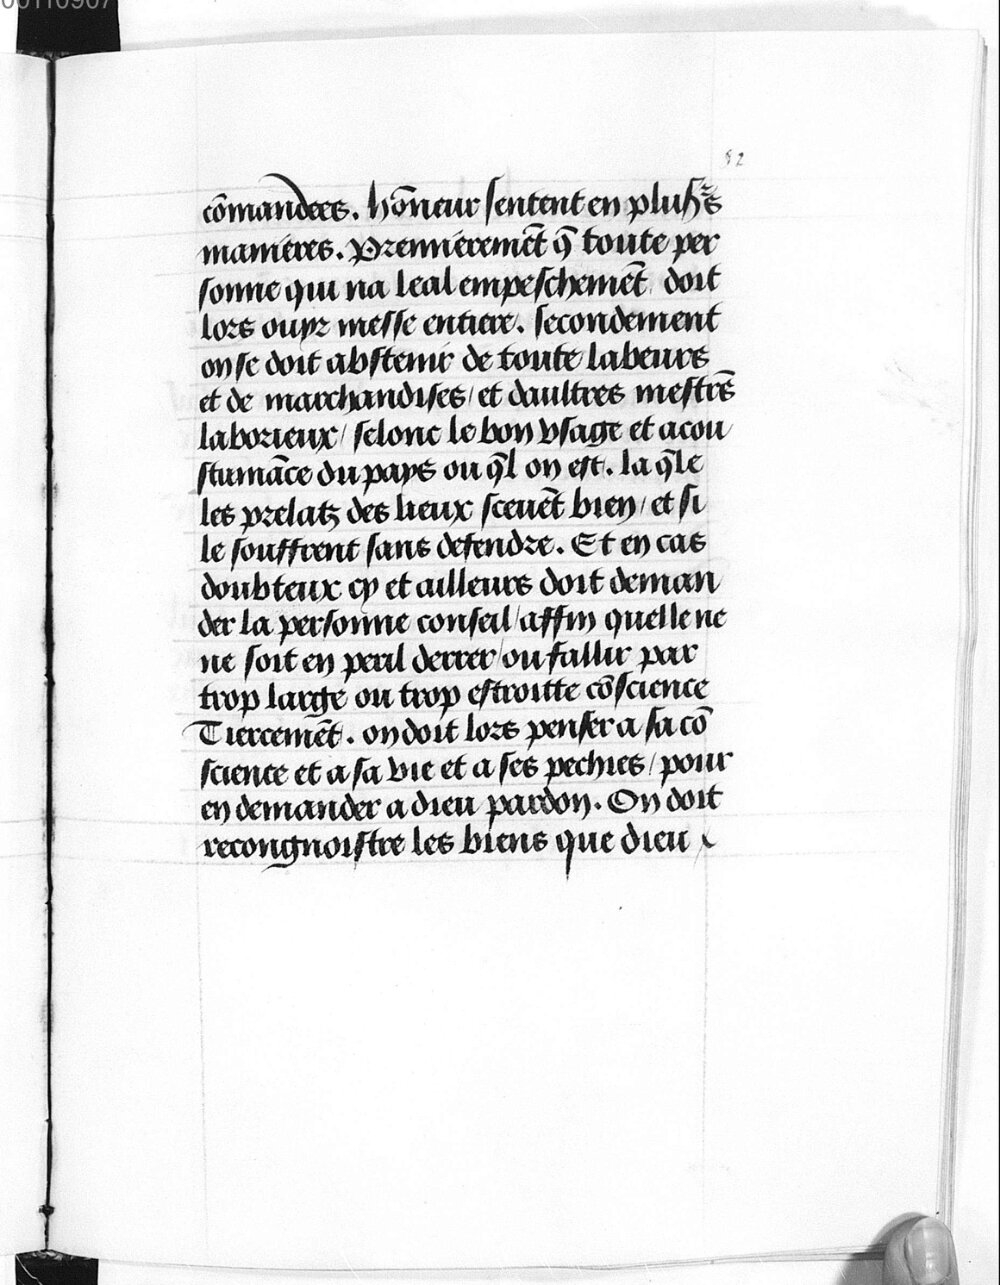 00110907
52
cōmandees. hōneur sentent en plusrs
manieres. Premierement q̄ toute per
sonne qui na leal empeschemēt doit
lors ouyr messe entiere. secondement
on se doit abstenir de toute labeurs
et de marchandises / et daultres mestrs̄
laborieux / selonc le bon vsage et acou
stumāce du pays ou q̄l on est. la q̄le
les prelatz des lieux sceuēt bien / et si
le souffrent sans defendre. Et en cas
doubteux cy et ailleurs doit deman
der la personne conseil / affin quelle ne
ne soit en peril derrer / ou fallir par
trop large ou trop estroitte cōscience
Tiercemēt. on doit lors penser a sa cō
science et a sa vie et a ses pechies / pour
en demander a dieu pardon. On doit
recongnoistre les biens que dieu